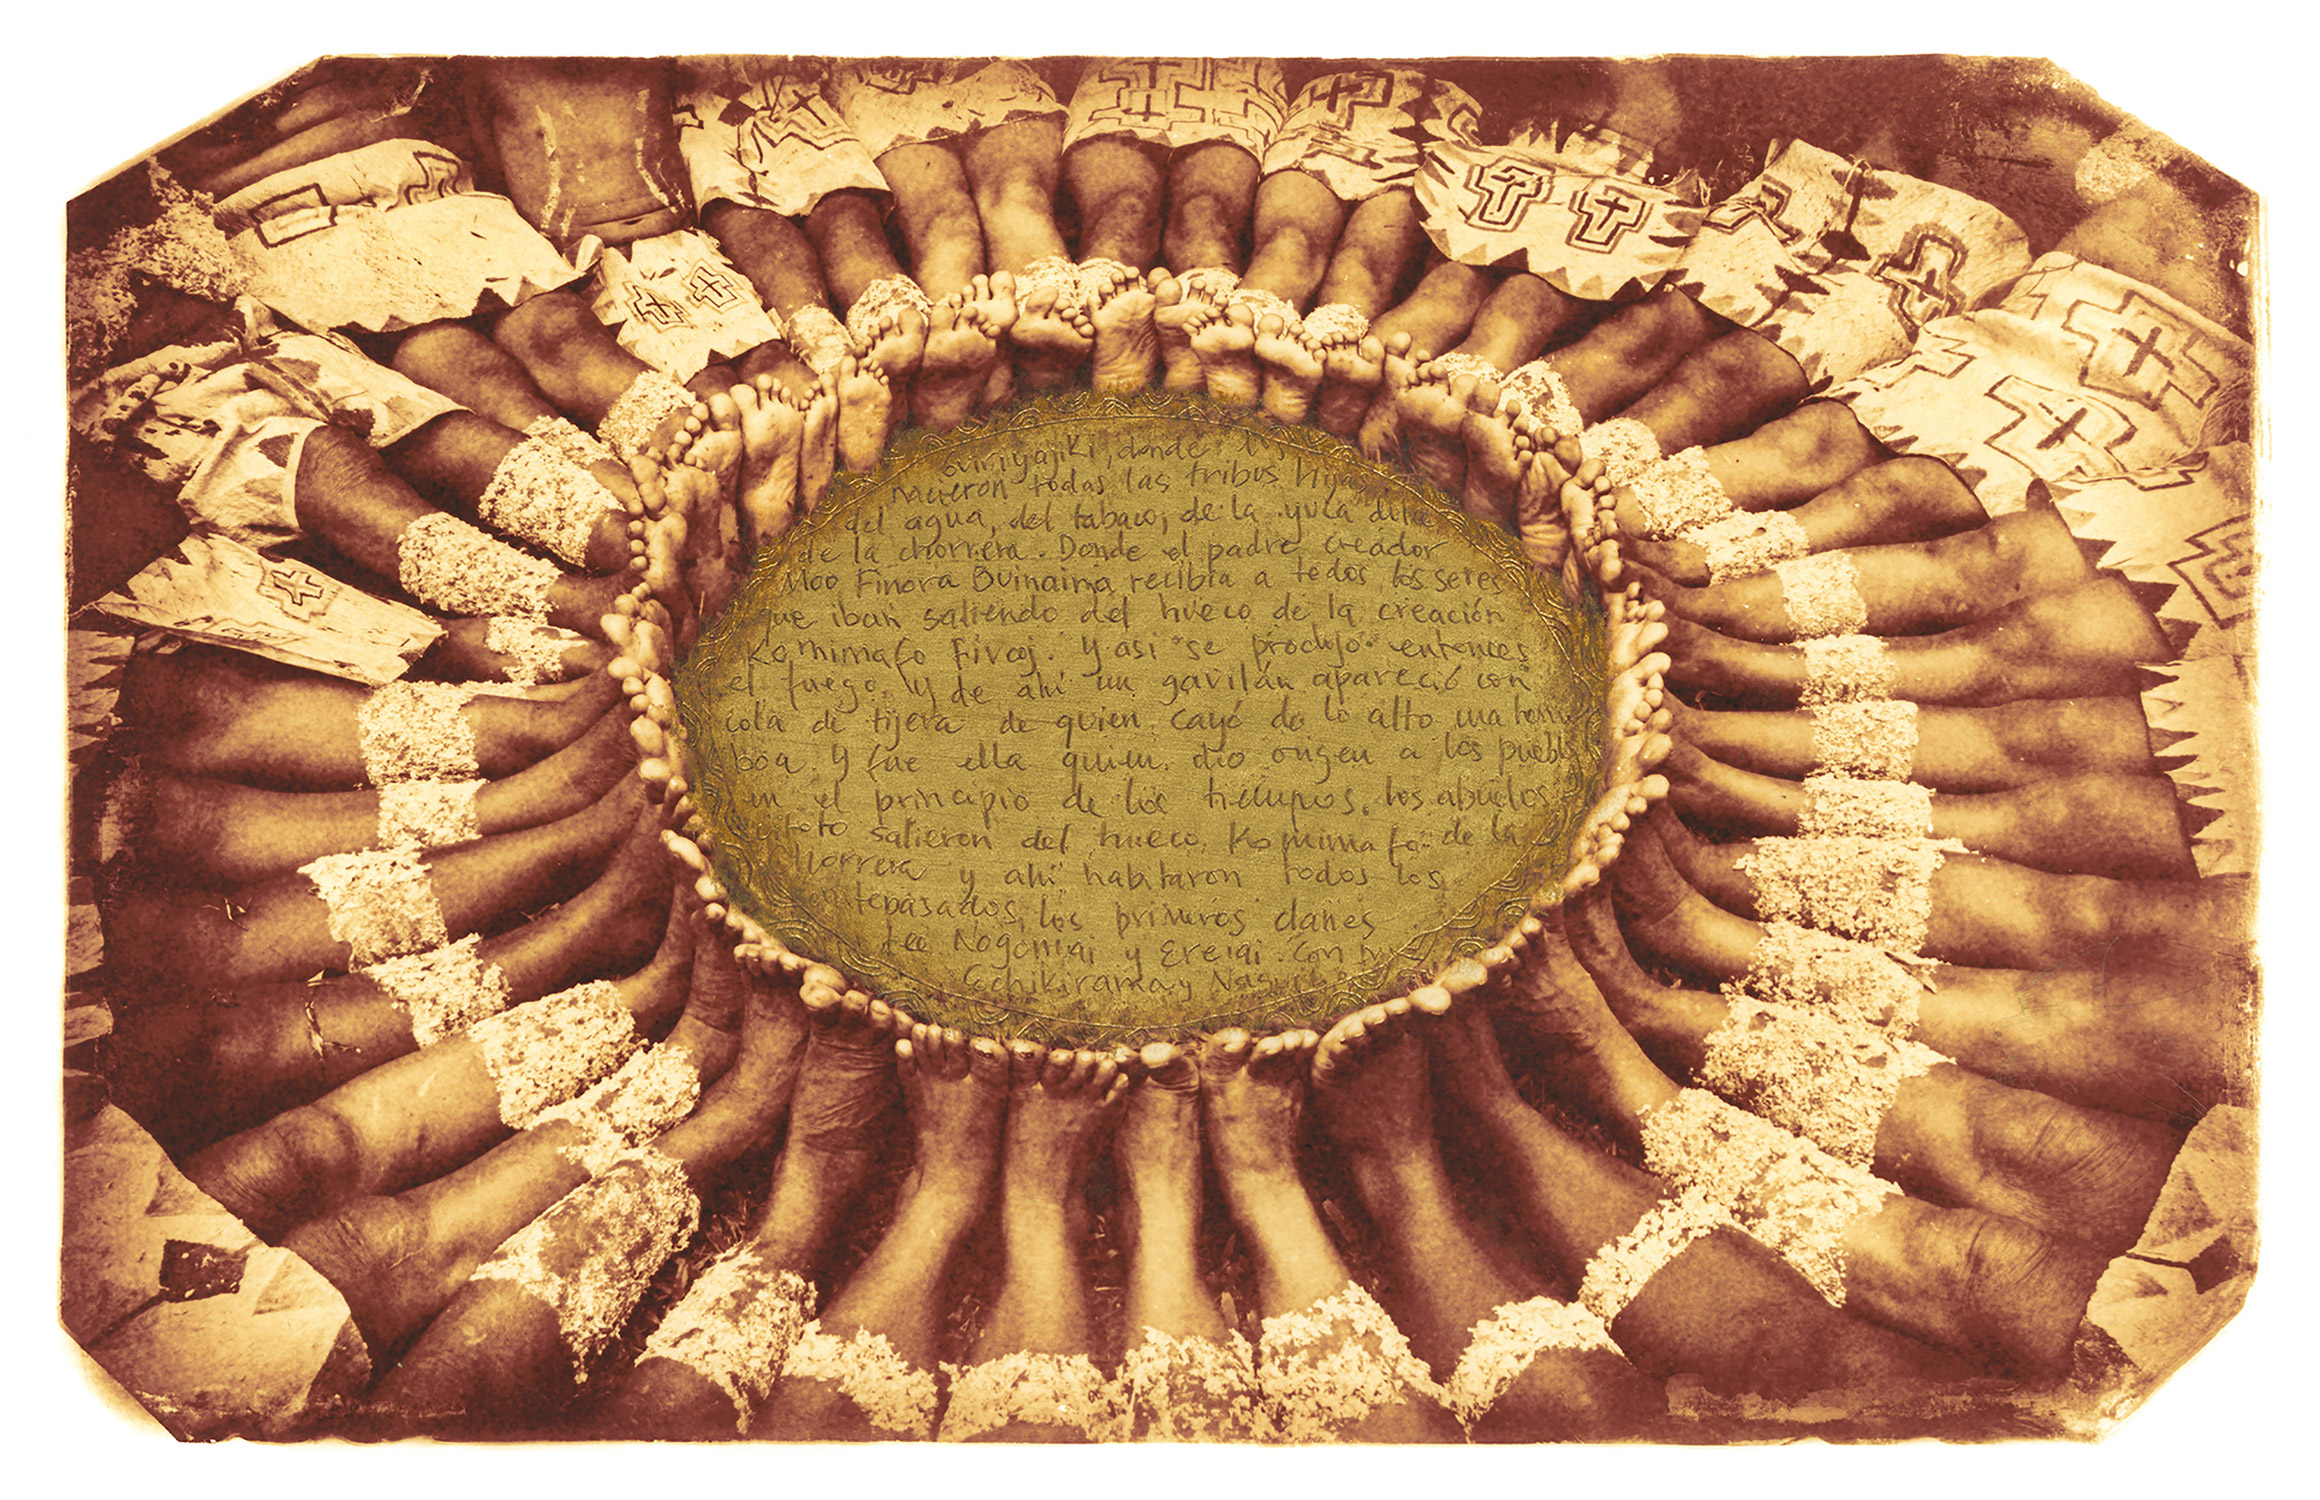 donde
nacieron todas las tribus hijas
del agua, del tabaco, de la yuca dulce
de la chorrera. Donde el padre creador
Moo Finora Buinaima recibía a todos los seres
que iban saliendo del hueco de la creación
Komimafo. Y así se produjo entonces
el fuego. Y de ahí un gavilán apareció con
cola de tijera de quien cayó de lo alto una
boa. Y fue ella quien dio origen a los
en el principio de los tiempos. Los abuelos
salieron del hueco Komimafo de la
horrera y ahí habitaron todos los
antepasados, los primeros clanes
Nogoniai y Ereiai. Con